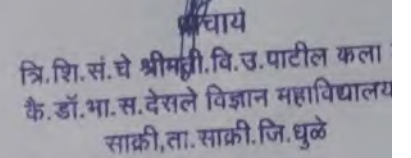 प्राचार्य
त्रि.शि.सं.चे श्रीमती.वि.उ.पाटील कला
कै.डॉ.भा.स.देसले विज्ञान महाविद्यालय
साक्री,ता.साक्री.जि.धुळे